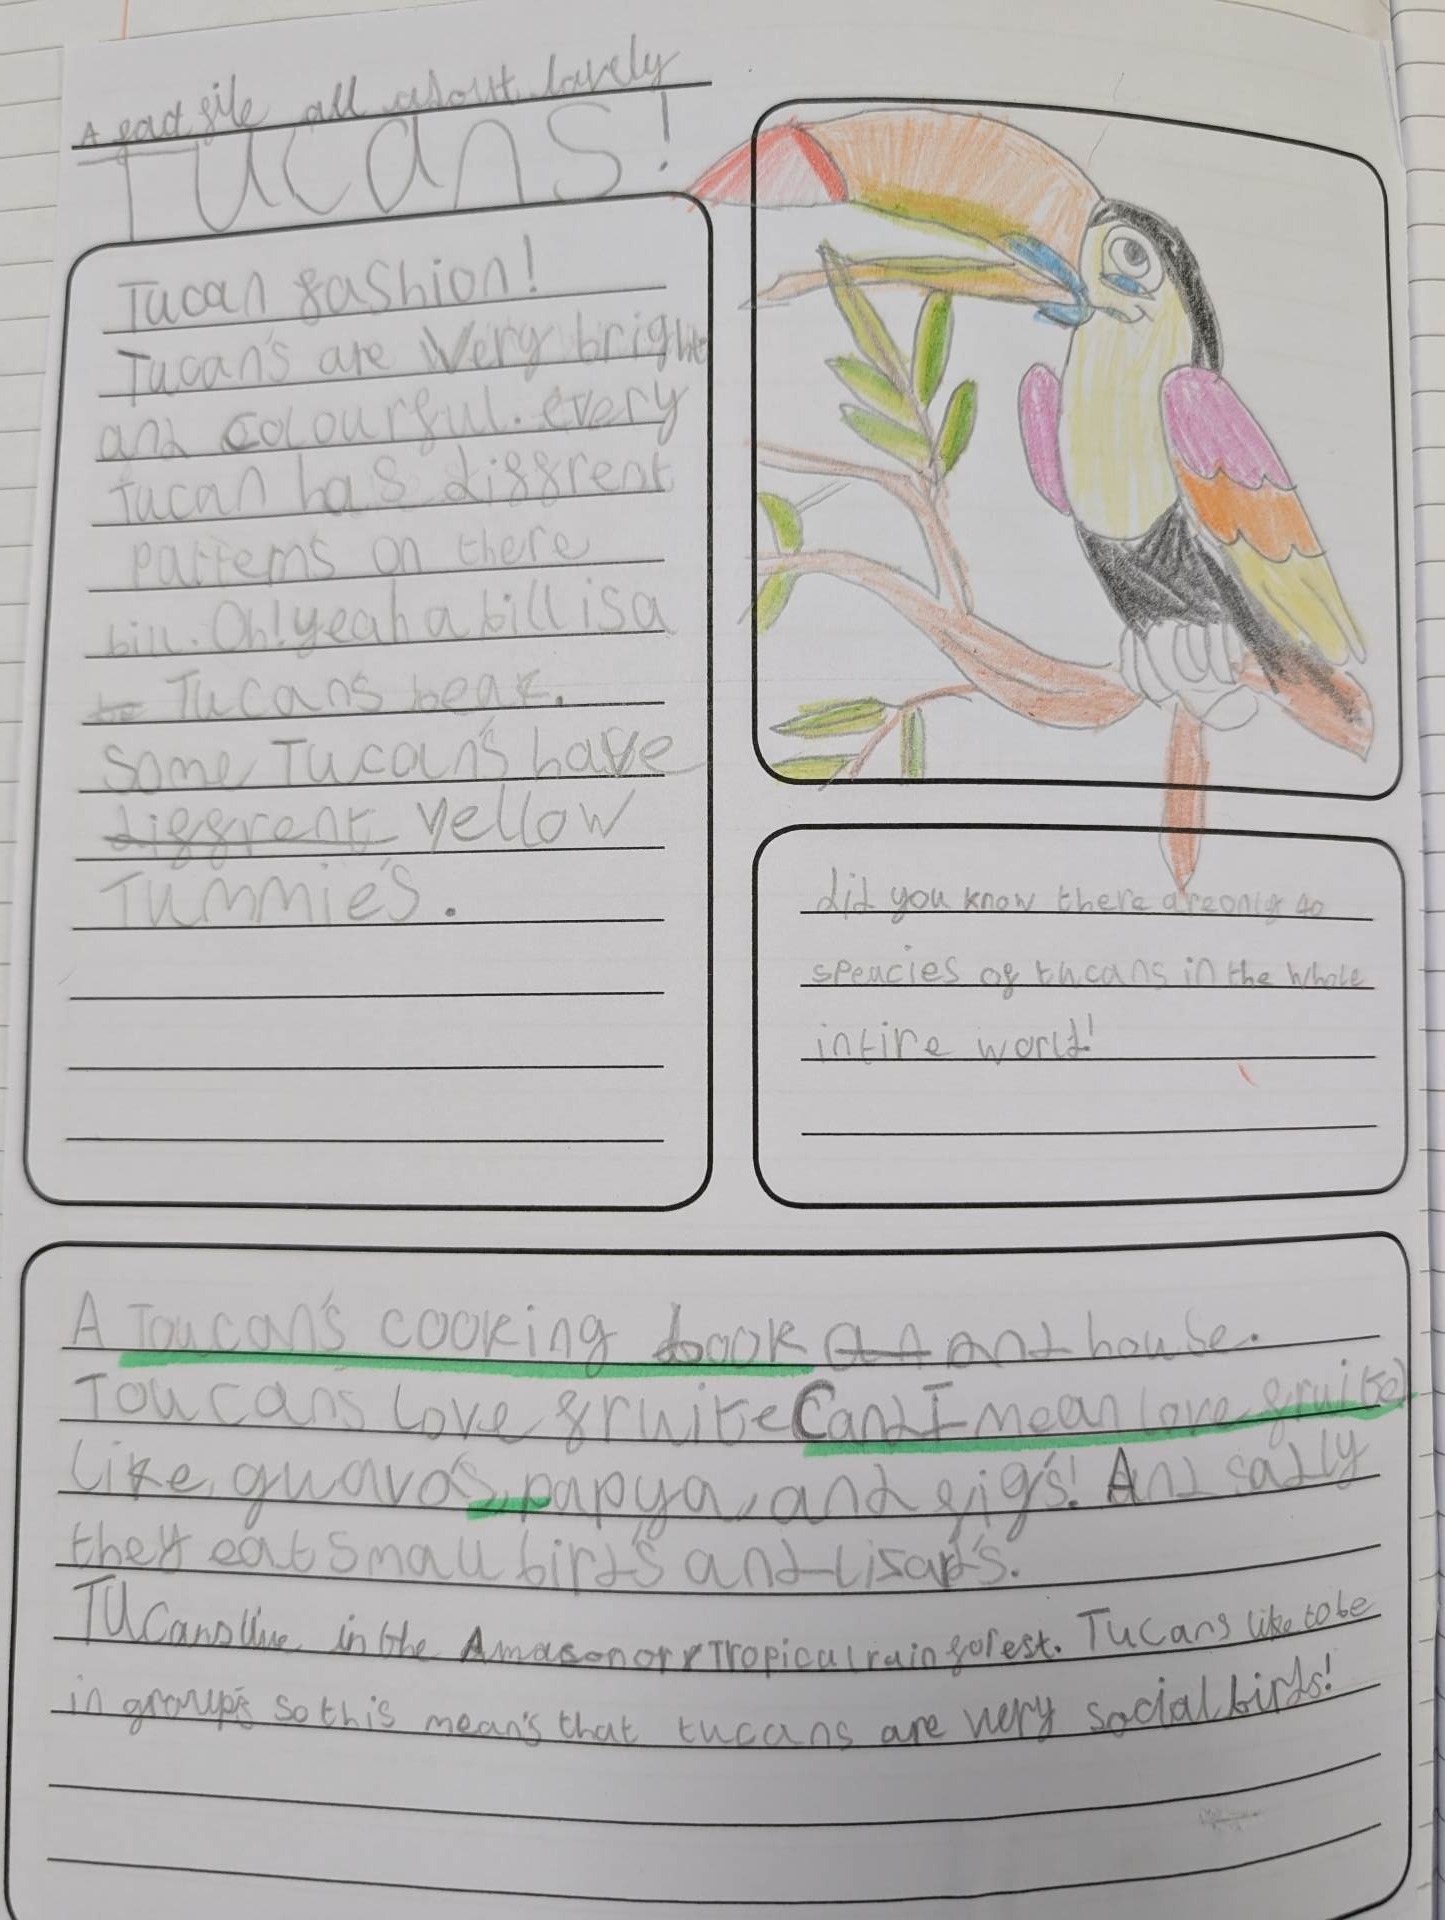 A fact file all about lovely
Tucans!
Tucan fashion!
Tucan's are very bright
and colourful. every
tucan has diffrent
patterns on there
bill. Oh! yeah a bill is a
be Tucans beak.
Some Tucan's have
diffrent yellow
Tummie's.
did you know there are only 40
speacies of tucans in the whole
intire world!
A Toucan's cooking book an and house.
Toucan's love fruite (and I mean love fruite)
like, guava's, papya, and fig's! And sadly
they eat small bird's and lisard's.
Tucans live in the Amason or Tropical rainforest. Tucans like to be
in group's so this mean's that tucans are very social birds!